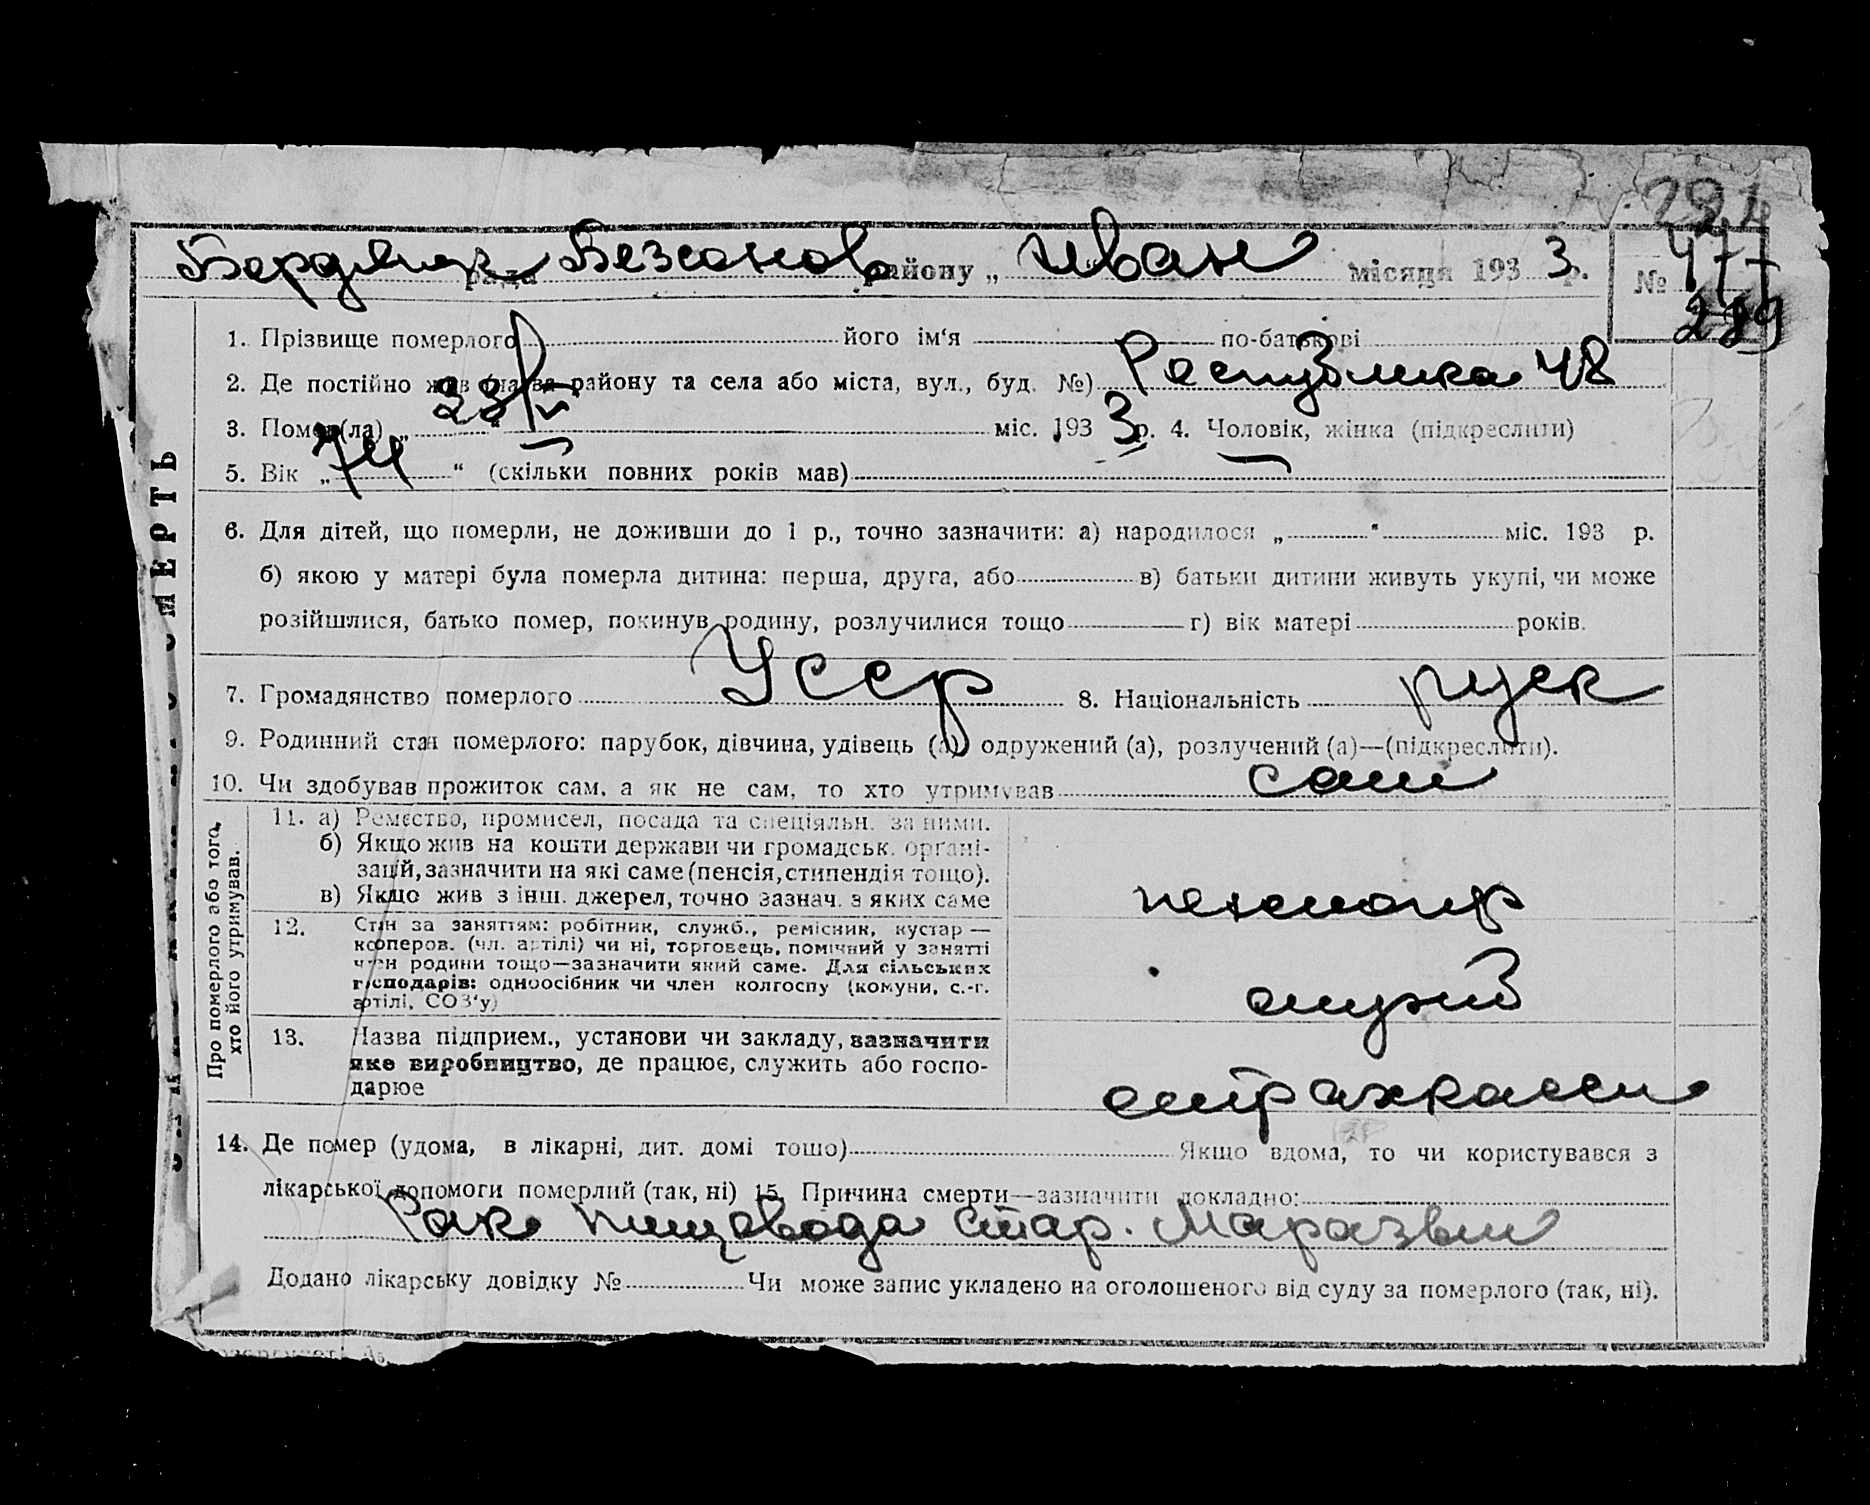 284
Бердянск рада Безсонов району „ Иван місяця 193 3 р. № 477
289
1. Прізвище померлого його ім'я по-батькові
2. Де постійно жив (назва району та села або міста, вул., буд. №) Республика 48
3. Помер(ла) „ 23/V міс. 193 3 р. 4. Чоловік, жінка (підкреслити)
5. Вік „ 74 “ (скільки повних років мав)
6. Для дітей, що померли, не доживши до 1 р., точно зазначити: а) народилося „ “ міс. 193 р.
б) якою у матері була померла дитина: перша, друга, або в) батьки дитини живуть укупі, чи може
розійшлися, батько помер, покинув родину, розлучилися тощо г) вік матері років.
7. Громадянство померлого Усср 8. Національність руск
9. Родинний стан померлого: парубок, дівчина, удівець (а), одружений (а), розлучений (а)—(підкреслити).
10. Чи здобував прожиток сам, а як не сам, то хто утримував сам
Про померлого або того, хто його утримував.
11. а) Ремество, промисел, посада та спеціяльн. за ними.
б) Якщо жив на кошти держави чи громадськ. органі-
зацій, зазначити на які саме (пенсія, стипендія тощо).
в) Якщо жив з інш. джерел, точно зазнач. з яких саме
пенсионер
12. Стан за заняттям: робітник, служб., ремісник, кустар —
кооперов. (чл. артілі) чи ні, торговець, помічний у занятті
член родини тощо—зазначити який саме. Для сільських
господарів: одноосібник чи член колгоспу (комуни, с.-г.
артілі, СОЗ'у)
служ
13. Назва підприєм., установи чи закладу, зазначити
яке виробництво, де працює, служить або госпо-
дарює
страхкассы
14. Де помер (удома, в лікарні, дит. домі тощо) Якщо вдома, то чи користувався з
лікарської допомоги померлий (так, ні) 15. Причина смерти—зазначити докладно:
Рак пищевода стар. Маразмы
Додано лікарську довідку № Чи може запис укладено на оголошеного від суду за померлого (так, ні).